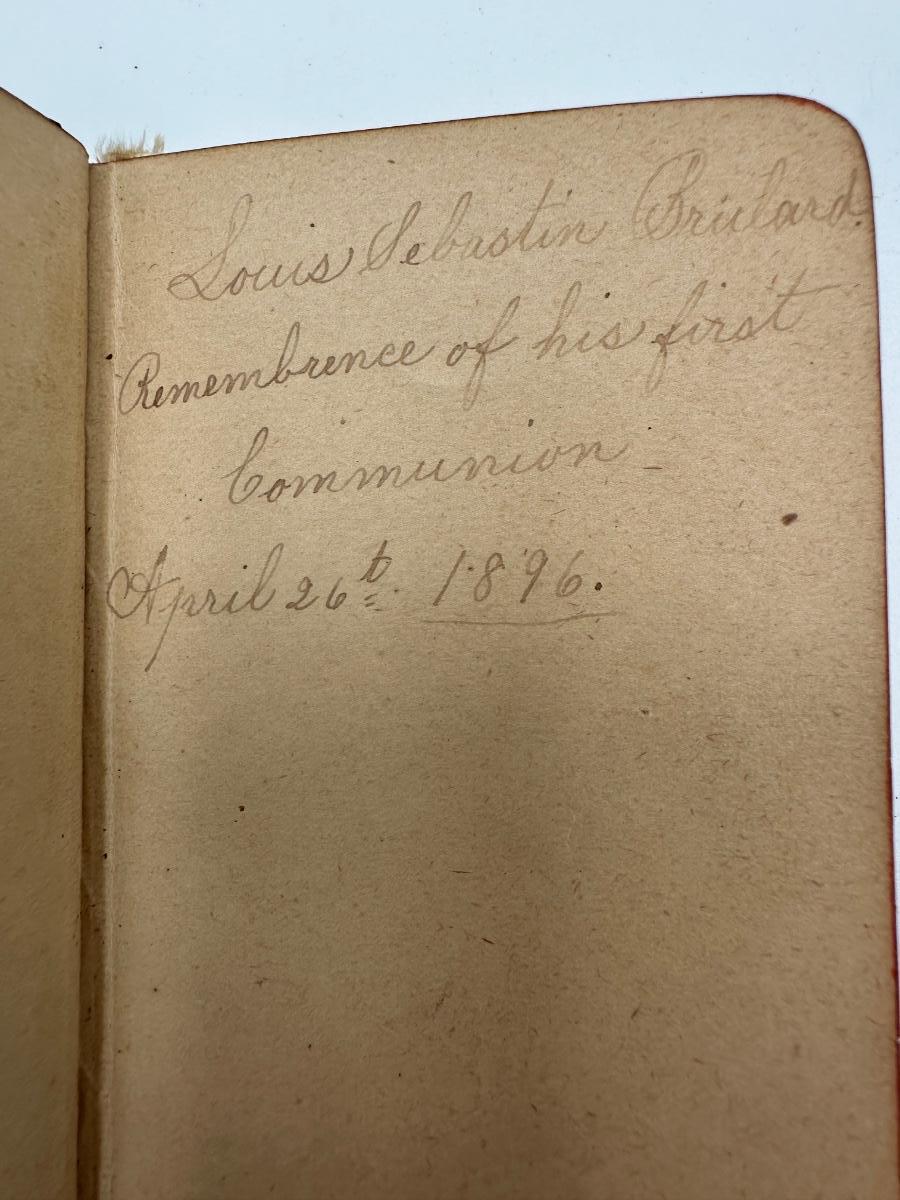 Louis Sebastin Brulard.
Remembrence of his first
Communion
April 26t. 1896.